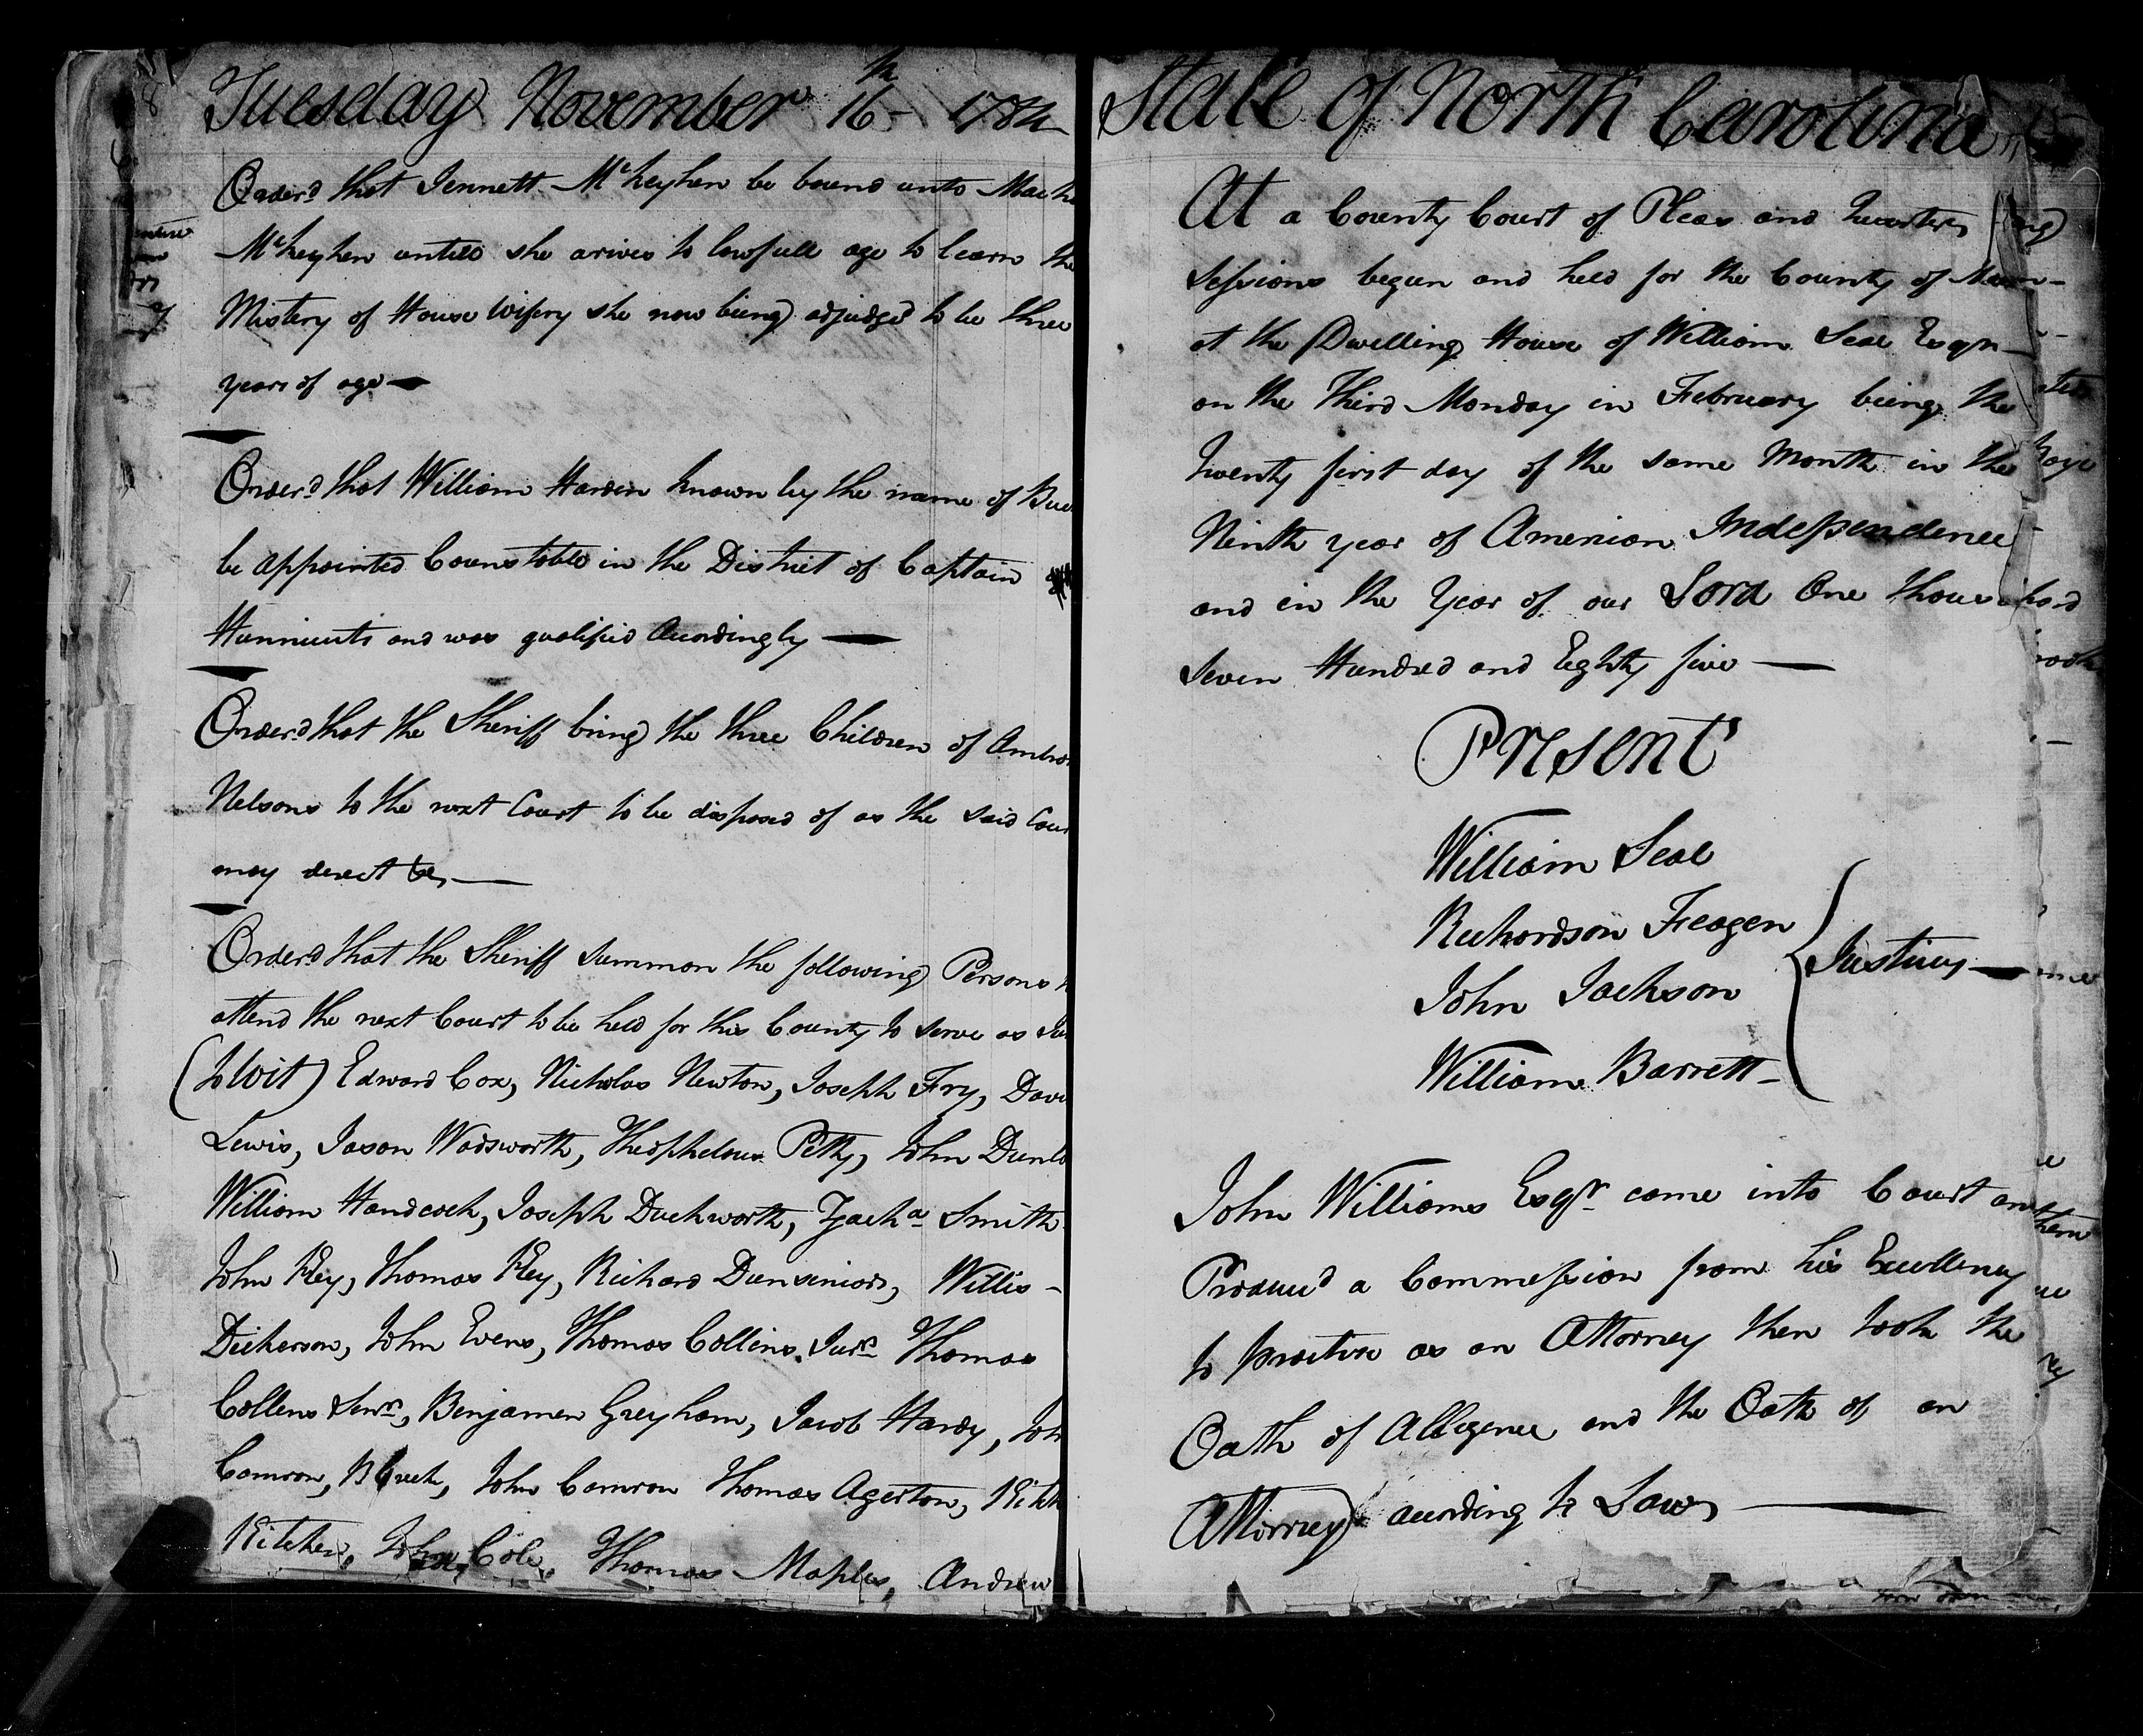 Tuesday November 16th 1784
Orderd that Jennett McKeyhen be bound unto
McKeyhen untill she arives to lawfull age to learn the
Mistery of House Wifery she now being adjudgd to be three
years of age
Orderd that William Harden known by the name of
be appointed Counstable in the District of Captain
Hunnicuts and was qualified Acordingly
Orderd that the Sheriff bring the three Children of
Nelsons to the next Court to be disposed of as the said
may derect &c,
Orderd that the Sheriff summon the following Persons
attend the next Court to be held for this County to serve as
(to Wit) Edward Cox, Nicholas Newton, Joseph Fry,
Lewis, Jason Wadsworth, Theophelous Petty, John
William Handcock, Joseph Duckworth, Zacha Smith
John Key, Thomas Key, Richard Dunn senior, Willis
Dickerson, John Evens, Thomas Collins Junr Thomas
Collens Senr, Benjamen Greyham, Jacob Hardy,
Camron, B Creek, John Camron Thomas Agerton,
Kitchen, John Cole, Thomas Maples, Andrew
State of North Carolina
At a County Court of Pleas and Quarter
Sessions begun and held for the County of
at the Dwelling House of William Seal Esqr
on the Third Monday in February being the
Twenty first day of the same Month in the
Ninth year of American Independence
and in the Year of our Lord One
Seven Hundred and Eighty five
Present
William Seal
Richardson Feagen
John Jackson
William Barrett
Justices
John Williams Esqr came into Court
Producd a Commession from his Excellency
to practice as an Attorney then took the
Oath of Allegence and the Oath of an
Attorney acording to Law